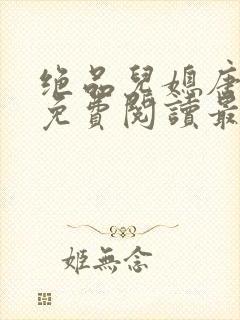 绝品兒媳唐
免費閱讀最
姬無念